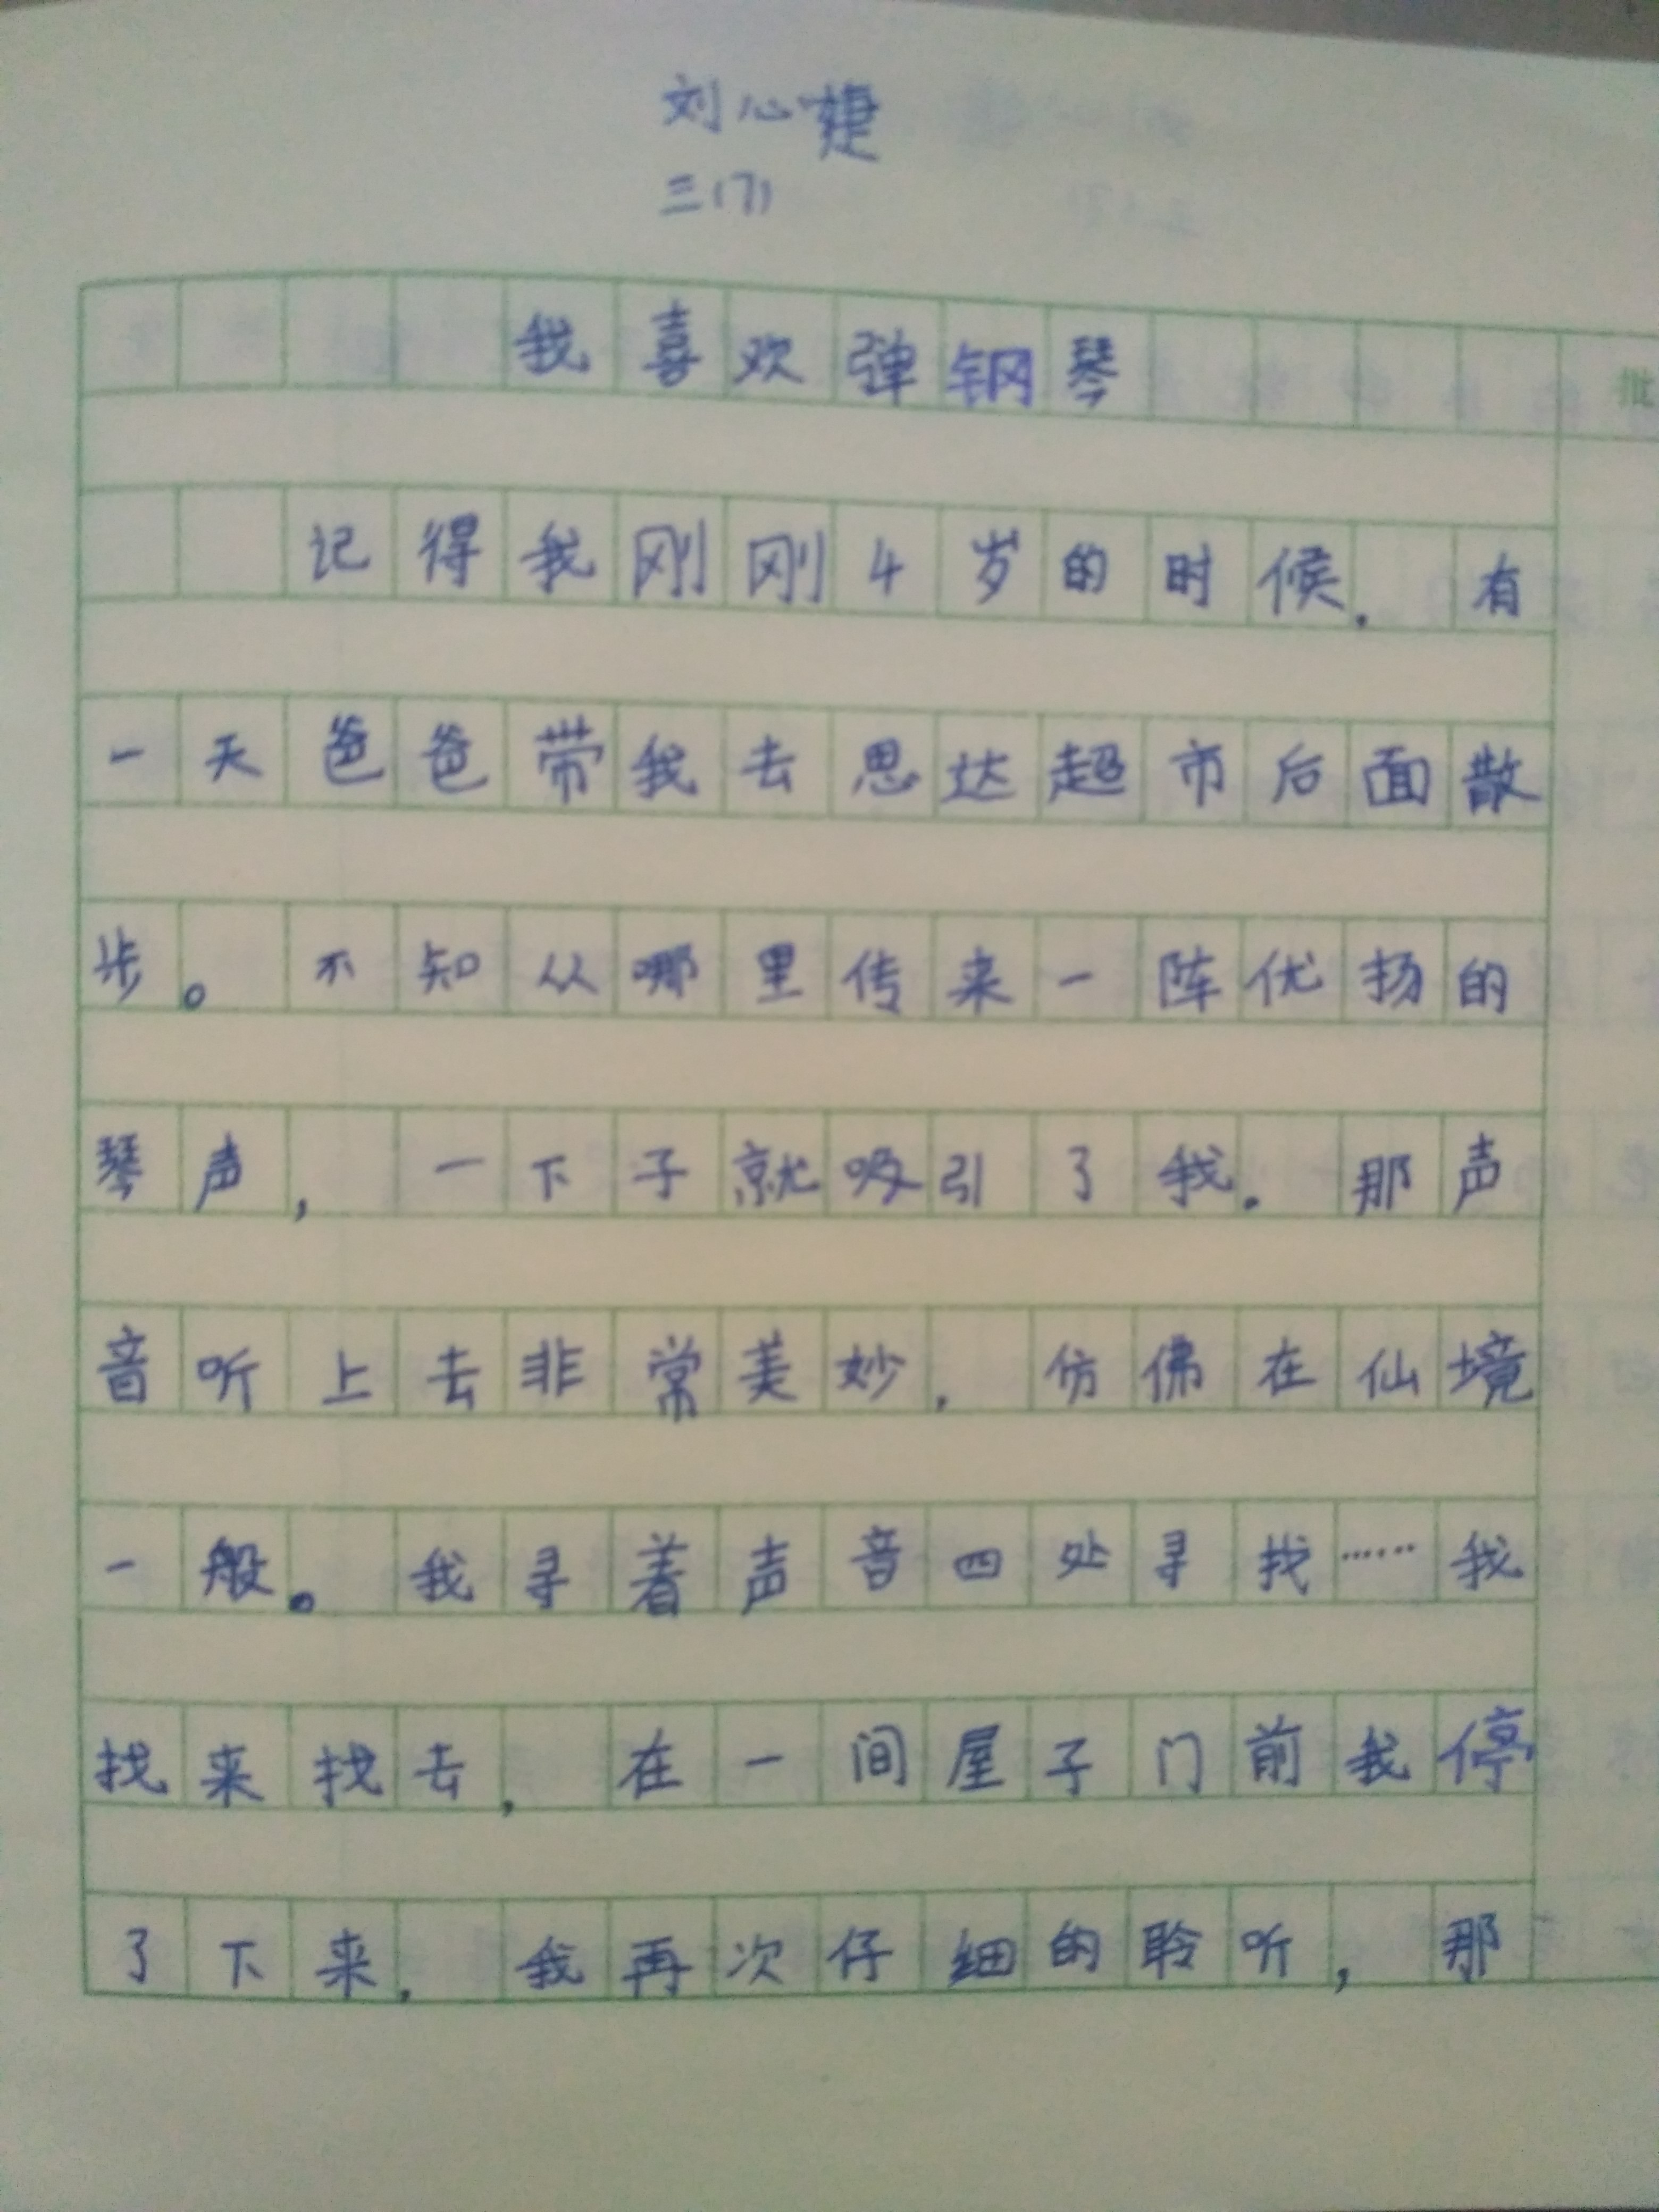 刘心婕
三(7)
我喜欢弹钢琴
批
记得我刚刚4岁的时候，有
一天爸爸带我去思达超市后面散
步。不知从哪里传来一阵优扬的
琴声，一下子就吸引了我。那声
音听上去非常美妙，仿佛在仙境
一般。我寻着声音四处寻找……我
找来找去，在一间屋子门前我停
了下来，我再次仔细的聆听，那